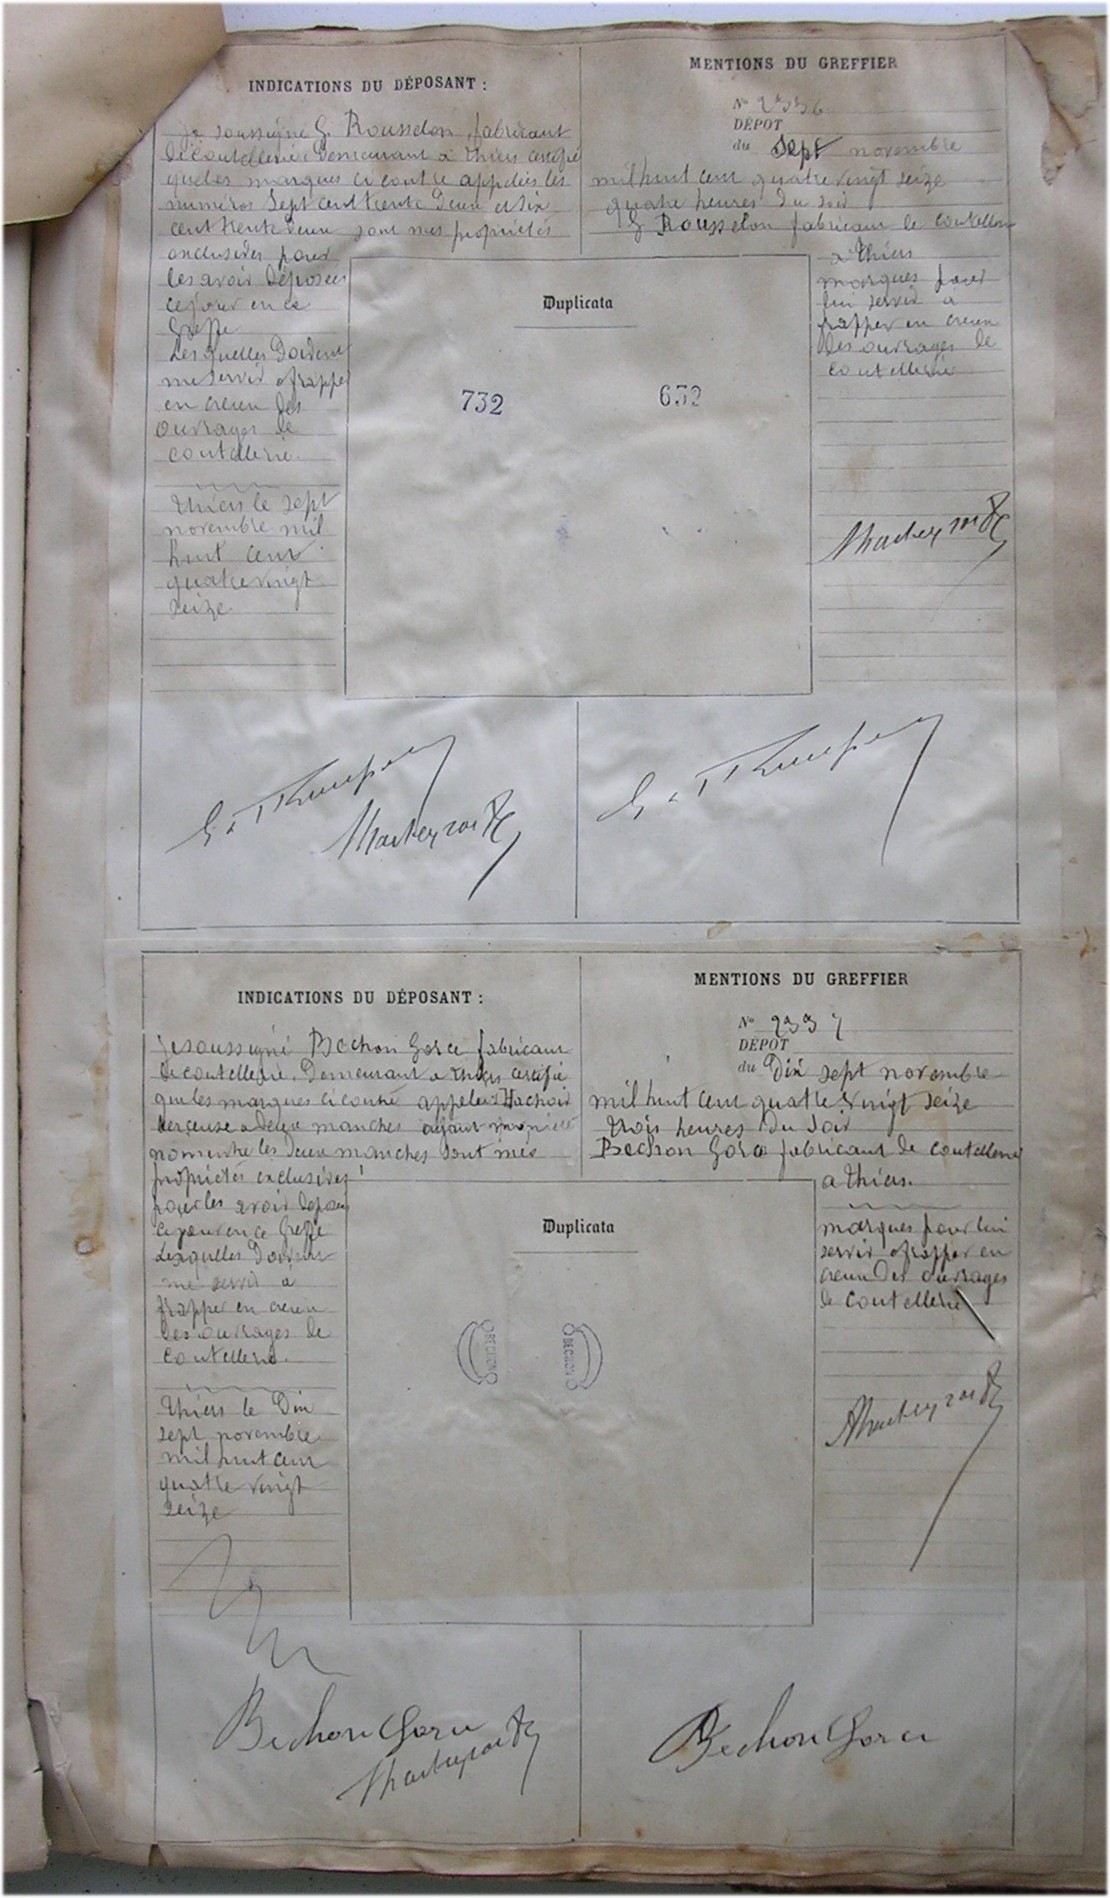 INDICATIONS DU DÉPOSANT :
Je soussigné G. Rousselon fabricant
de coutellerie Demeurant à Thiers certifie
que les marques ci contre appelées les
numéros sept cent trente deux et six
cent trente deux sont mes propriétés
exclusives pour
les avoir déposées
ce jour en ce
Greffe
Lesquelles Doivent
me servir à frapper
en creux des
ouvrages de
coutellerie.
Thiers le sept
novembre mil
huit cent
quatre vingt
seize
MENTIONS DU GREFFIER
No 2336
DÉPOT
du sept novembre
mil huit cent quatre vingt seize
quatre heures du soir
G Rousselon fabricant de coutellerie
a Thiers
marques pour
lui servir a
frapper en creux
des ouvrages de
coutellerie
Duplicata
732 632
INDICATIONS DU DÉPOSANT :
Je soussigné Bechon Gorce fabricant
de coutellerie. Demeurant a Thiers certifie
que les marques ci contre appelées Hachoir
berceuse a deux manches ayant
entre les deux manches sont mes
propriétés exclusives
pour les avoir déposées
ce jour en ce Greffe
Lesquelles Doivent
me servir à
frapper en creux
des ouvrages de
coutellerie.
Thiers le Dix
sept novembre
mil huit cent
quatre vingt
seize
MENTIONS DU GREFFIER
No 2337
DÉPOT
du Dix sept novembre
mil huit cent quatre vingt seize
trois heures du soir
Bechon Gorce fabricant de coutellerie
a Thiers.
marques pour lui
servir a frapper en
creux Des ouvrages
de coutellerie
Duplicata
BECHON BECHON
Bechon Gorce
Bechon Gorce